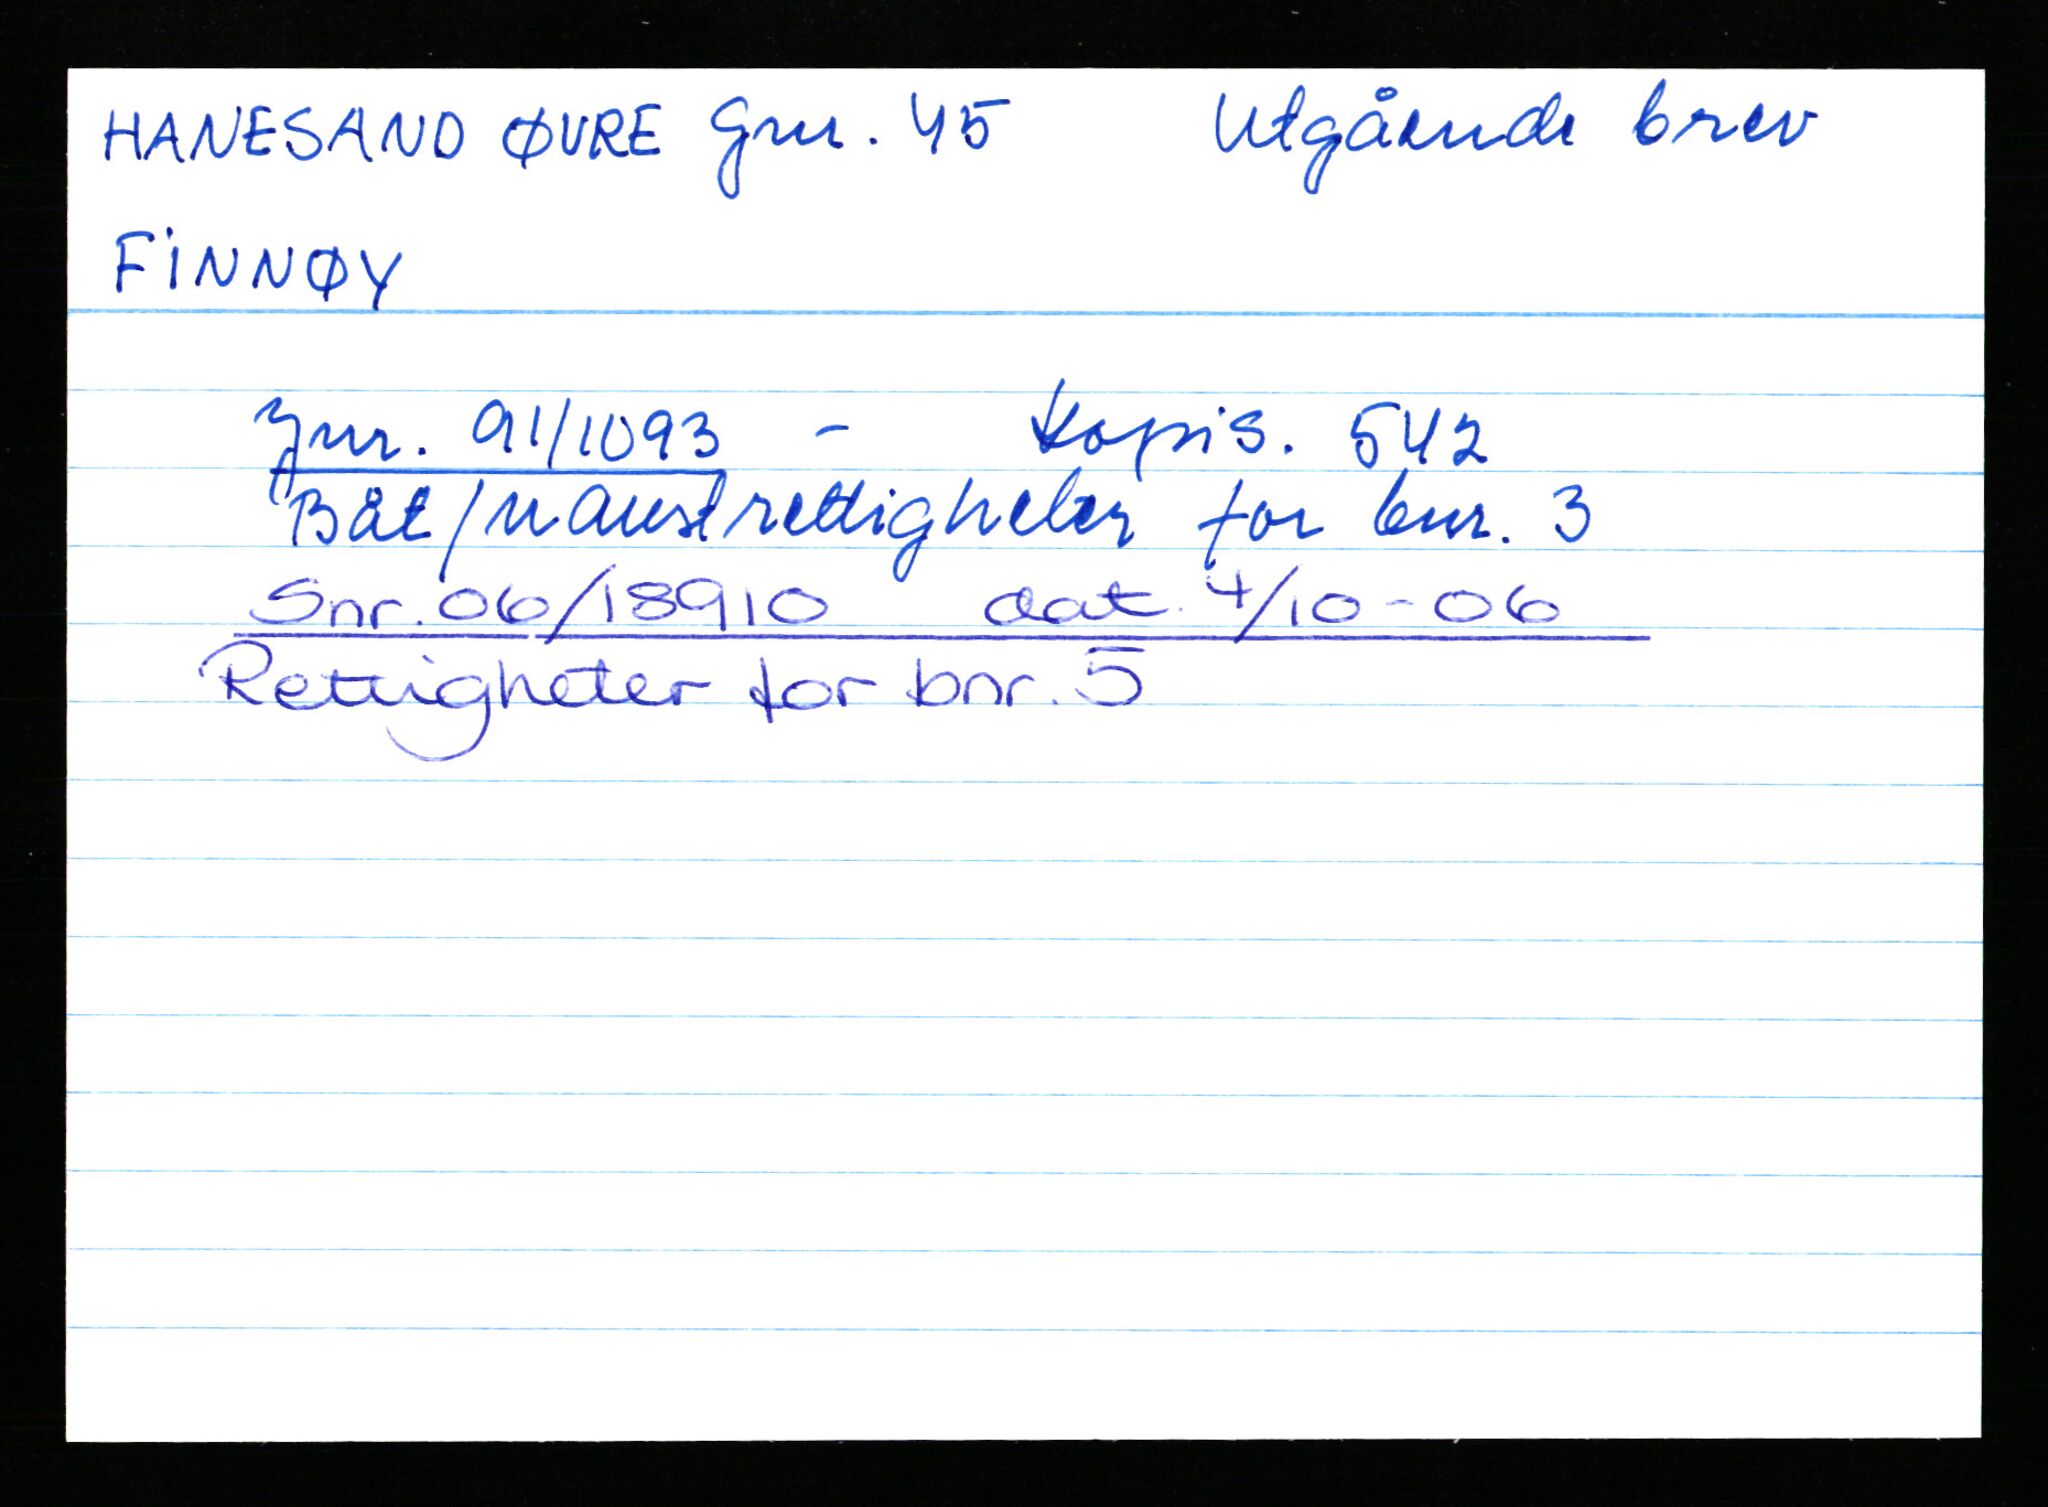 HANESAND ØVRE Gnr. 45 Utgående brev
FINNØY
Jnr. 91/1093 - Kopis. 542
Båt/naustrettigheter for bnr. 3
Snr. 06/18910 dat. 4/10-06
Rettigheter for bnr. 5